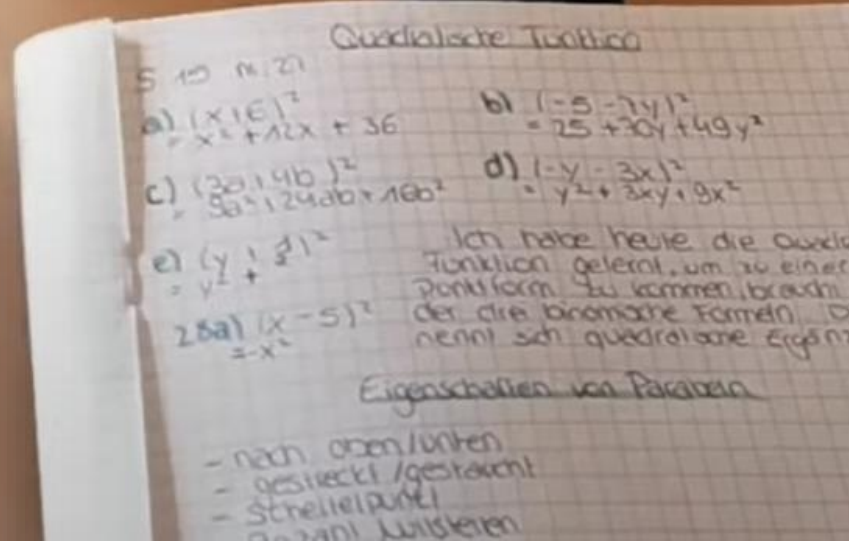 Quadratische Funktion
S 19 n. 21
a) (x+6)²
= x² + 12x + 36
b) (-5 - 7y)²
= 25 + 70y + 49y²
c) (3a + 4b)²
= 9a² + 24ab + 16b²
d) (-y - 3x)²
= y² + 3xy + 9x²
e) (y + ½)²
= y² +
Ich habe heute die
Funktion gelernt, um zu einer
kommen,
der die binomische Formeln.
nennt sich quadratische
25a) (x - 5)²
= x²
Eigenschaften von Parabeln
- nach oben/unten
- gestreckt/gestaucht
- Scheitelpunkt